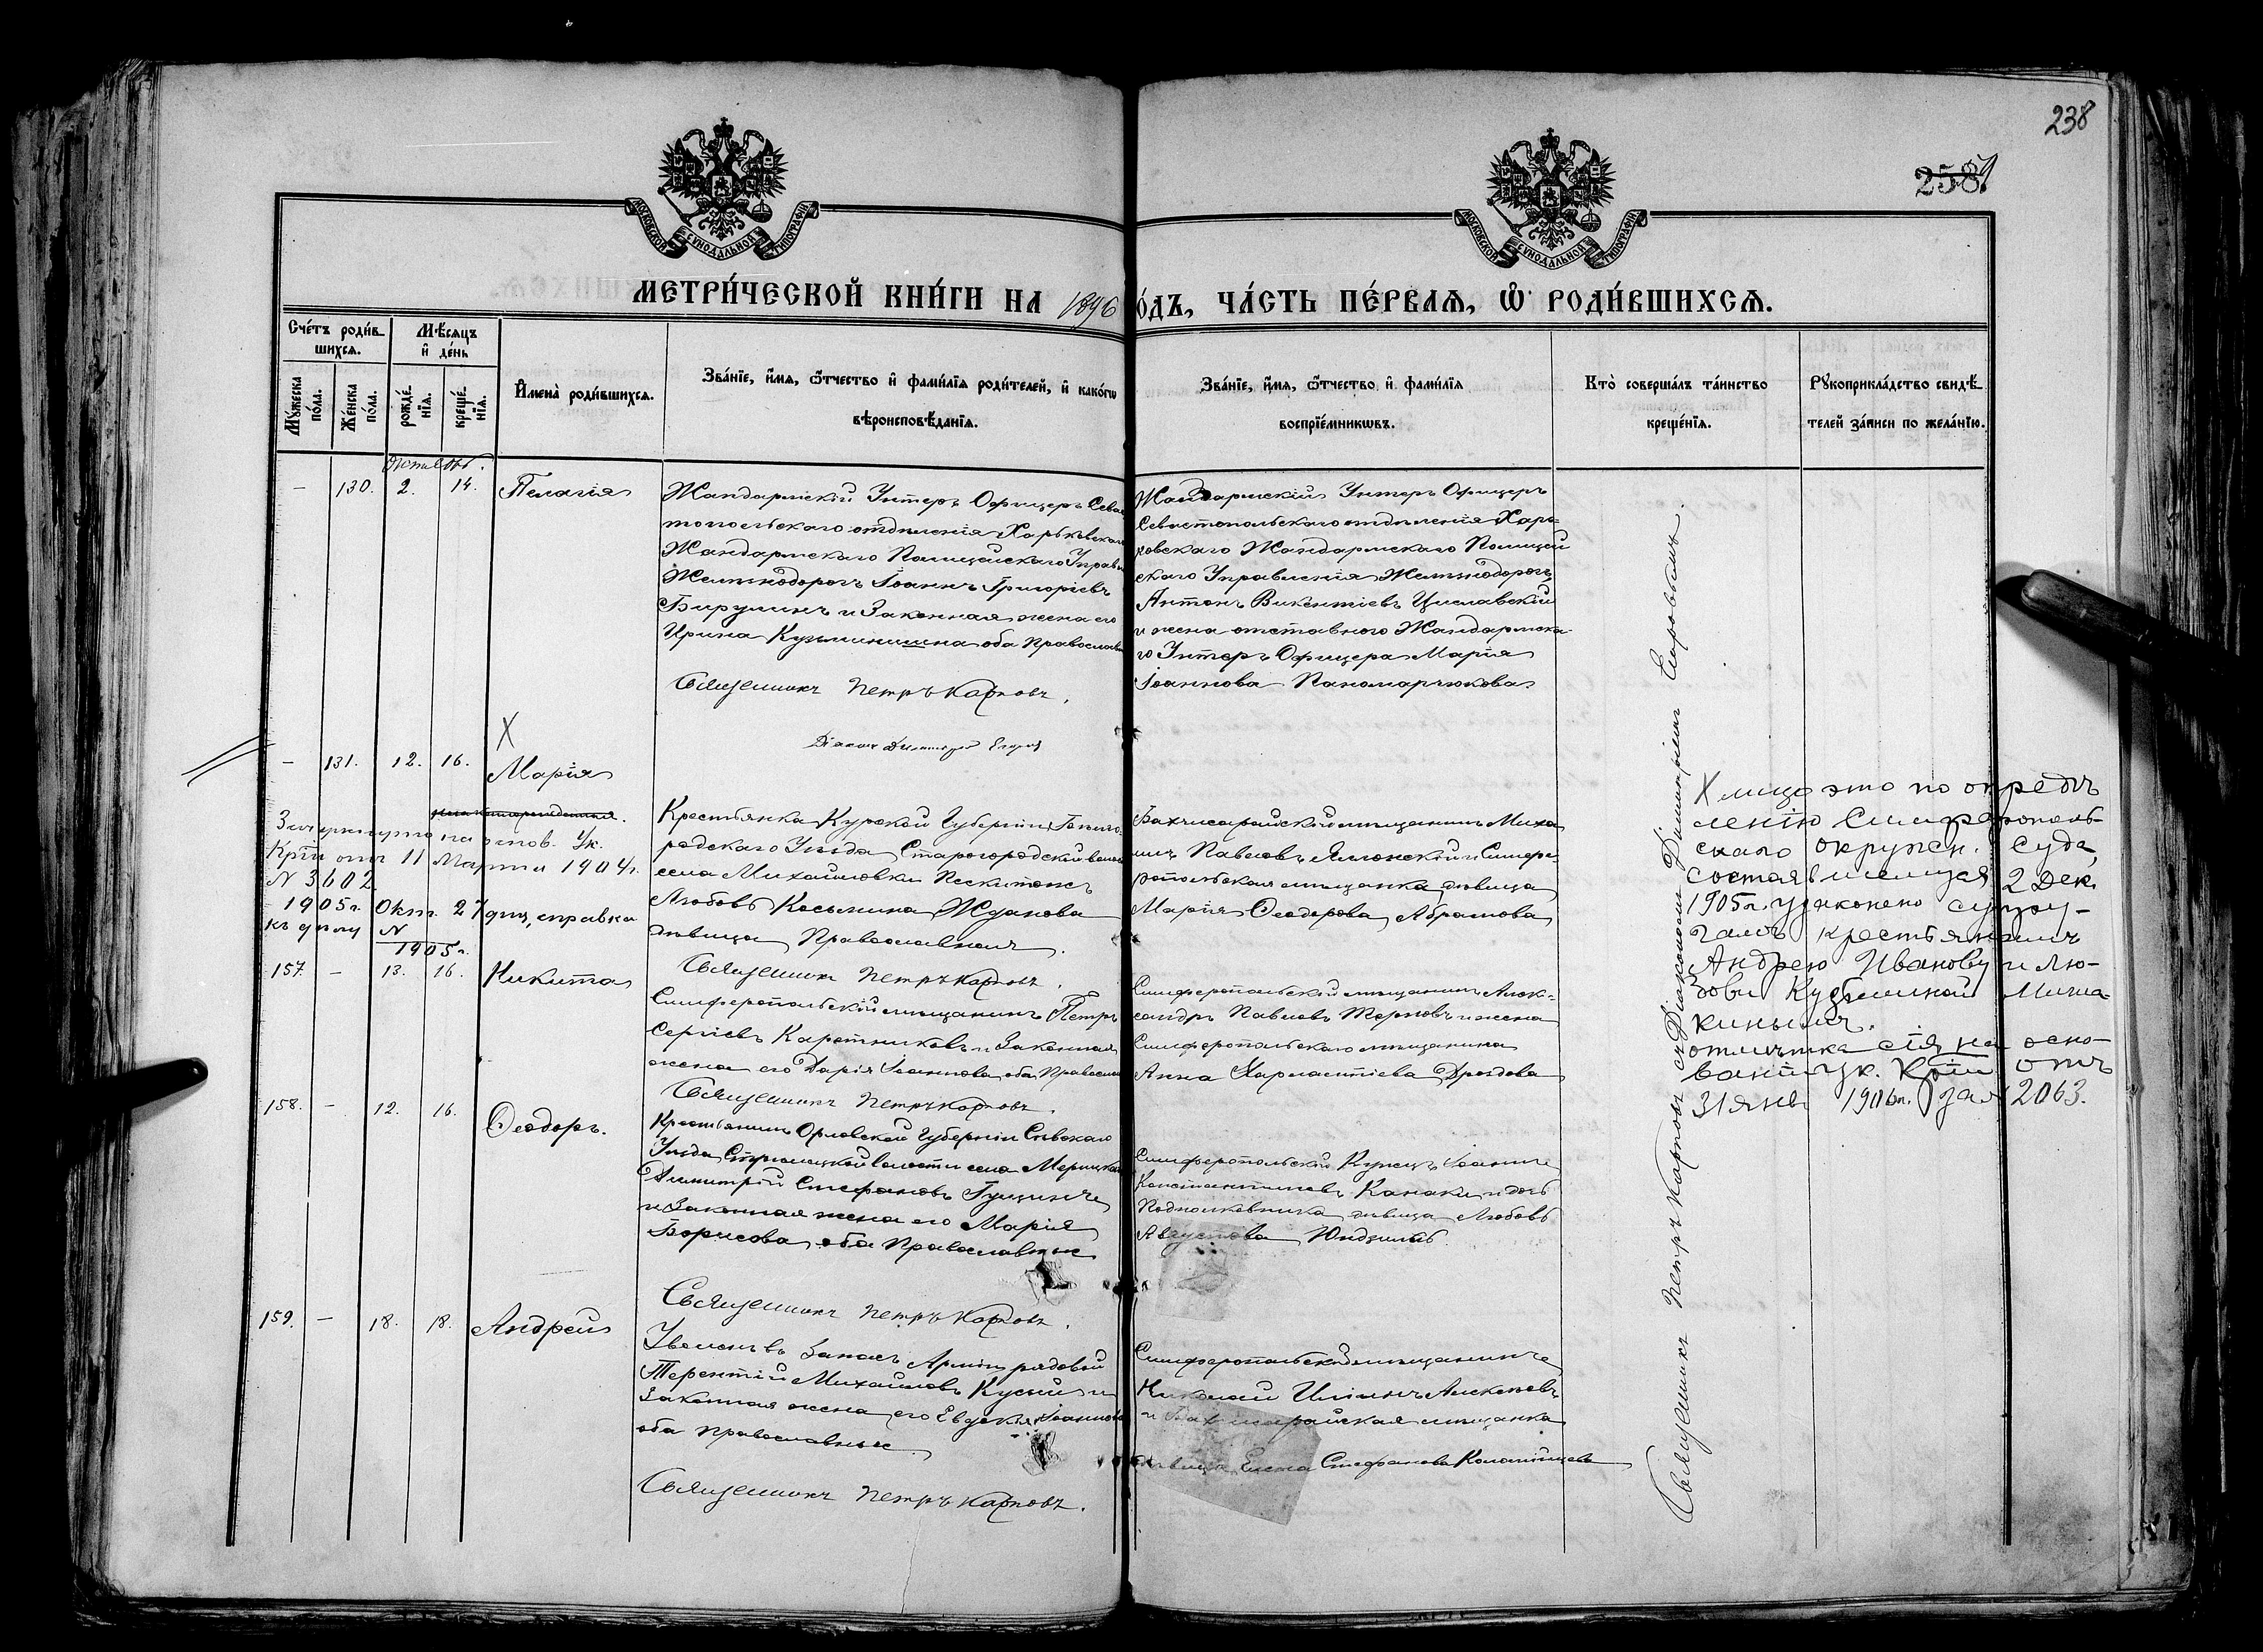 238
2589
МОСКОВСКОЙ СѴНОДАЛЬНОЙ ТИПОГРАФІИ
МОСКОВСКОЙ СѴНОДАЛЬНОЙ ТИПОГРАФІИ
МЕТРИ́ЧЕСКОЙ КНИ́ГИ НА 1896
О́ДЪ, ЧА́СТЬ ПЕ́РВАѦ, Ѡ РОДИ́ВШИХСѦ.
Сче́тъ роди́в-
шихсѧ.
Мꙋ́жеска по́ла.
Же́нска по́ла.
Мѣ́сѧцъ
и҆ де́нь
рожде́нїѧ.
креще́нїѧ.
И҆мена̀ роди́вшихсѧ.
Зва́нїе, и҆́мѧ, ѻ҆́тчество и҆ фами́лїѧ роди́телей, и҆ како́гѡ
вѣроисповѣ́данїѧ.
Зва́нїе, и҆́мѧ, ѻ҆́тчество и҆ фами́лїѧ
воспрїе́мникѡвъ.
Кто̀ соверша́лъ та́инство
креще́нїѧ.
Рꙋкоприкла́дство свидѣ́-
телей за́писи по жела́нїю.
Октябрь.
— 130. 2. 14. Пелагія
Жандармскій Унтеръ Офицеръ Сева
топольскаго отдѣленія Харьковскаго
Жандармскаго Полицейскаго Управ
Желѣзнодорогъ Іоаннъ Григоріевъ
Бирулинъ и Законная жена его
Ирина Кузьминишна оба Православ
Священникъ Петръ Карповъ.
Жандармскій Унтеръ Офицеръ
Севастопольскаго отдѣленія Харь-
ковскаго Жандармскаго Полицей
скаго Управленія Желѣзнодорогъ
Антонъ Викентіевъ Циславскій
и жена отставного Жандармска-
го Унтеръ Офицера Марія
Іоаннова Паномарчюкова.
Діаконъ
X
— 131. 12. 16. Марія
Зачеркнуто на основ. Ук.
Крти отъ 11 Марта 1904 г.
N 3602
1905 г. Окт. 27 дня, справка
къ дѣлу N
1905 г.
Крестьянка Курской Губерніи
родскаго Уѣзда Старогородской воло
села Михайловки
Любовь Косьмина Жданова
дѣвица Православная.
Священникъ Петръ Карповъ.
Бахчисарайскій мѣщанинъ Миха
илъ Павловъ Ялтонскій и Симфе-
ропольская мѣщанка дѣвица
Марія Ѳеодорова Абрамова
X лицо это по опредѣ
ленію Симферополь-
скаго окружн. Суда,
состоявшемуся 2 Дек.
1905 г. узаконено супру-
гамъ крестьянамъ
Андрею Иванову и Лю-
бови Кузьминой
киным.
отмѣтка сія на осно-
ваніи ук. Крти отъ
31 янв. 1906 г. за N 2063.
157. — 13. 16. Никита
Симферопольскій мѣщанинъ Петръ
Сергіевъ Каретниковъ и Законная
жена его Дарія Іоаннова оба Правосла
Священникъ Петръ Карповъ.
Симферопольскій мѣщанинъ Алек-
сандръ Павловъ Терновъ и жена
Симферопольскаго мѣщанина
Анна Харлампіева Дроздова
158. — 12. 16. Ѳеодоръ.
Крестьянинъ Орловской Губерніи Сѣвскаго
Уѣзда волости села
Димитрій Стефановъ Гущинъ
и Законная жена его Марія
Борисова оба Православные
Священникъ Петръ Карповъ.
Симферопольскій Купецъ Іоаннъ
Константиновъ Канаки и дочь
Подполковника дѣвица Любовь
Августова
159. — 18. 18. Андрей
Уволенъ въ Запасъ Арміи рядовой
Терентій Михайловъ Кусый и
Законная жена его Евдокія Іоаннова
оба православные.
Священникъ Петръ Карповъ.
Симферопольскій мѣщанинъ
Николай Иліинъ Алексѣевъ
и Бахчисарайская мѣщанка
дѣвица Елена Стефанова Коломійцева
Священникъ Петръ Карповъ съ Діакономъ Димитріемъ